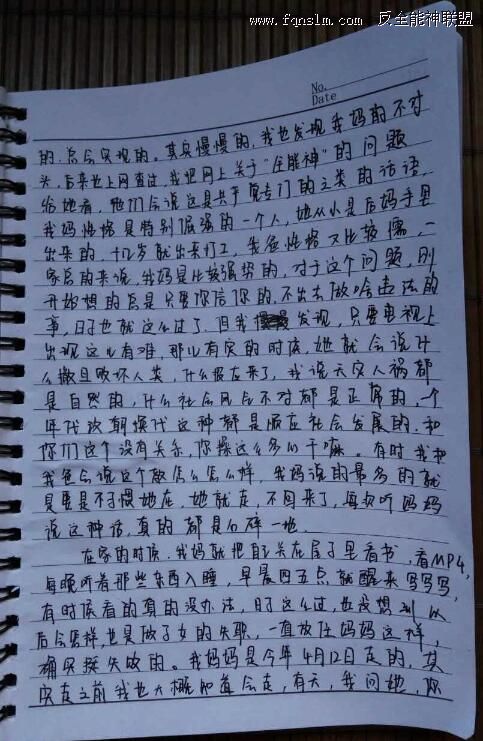 www.fqnslm.com 反全能神联盟
No.
Date
的,总会实现的。其实慢慢的,我也发现我妈的不对
头,后来也上网查过,我把网上关于“全能神”的问题
给她看,他们会说这是共产党专门的之类的话语,
我妈性格是特别倔强的一个人,她从小是后妈手里
出来的,十几岁就出来打工,我爸性格又比较懦,一
家总的来说,我妈是比较强势的,对于这个问题,刚
开始想的总是只要你信你的,不出去做啥违法的
事,日子也就这么过了,但我慢慢发现,只要电视上
出现这儿有难,那儿有灾的时候,她就会说什
么撒旦败坏人类,什么报应来了,我说天灾人祸都
是自然的,什么社会风气不对都是正常的,一个
年代改朝换代这种都是顺应社会发展的,和
你们这个没有关系,你操这么多心干嘛。有时我和
我爸会说这个教怎么怎么样,我妈说的最多的就
是要是不习惯她在,她就走,不回来了,每次听妈妈
说这种话,真的都是心碎一地。
在家的时候,我妈就把自己关在屋子里看书,看MP4,
每晚听着那些东西入睡,早晨四五点就醒来写写写,
有时候看的真的没办法,日子这么过,也没想到以
后会怎样,也是做子女的失职,一直放任妈妈这样,
确实挺失败的。我妈妈是今年4月12日走的,其
实走之前我也大概知道会走,有天,我问她,你